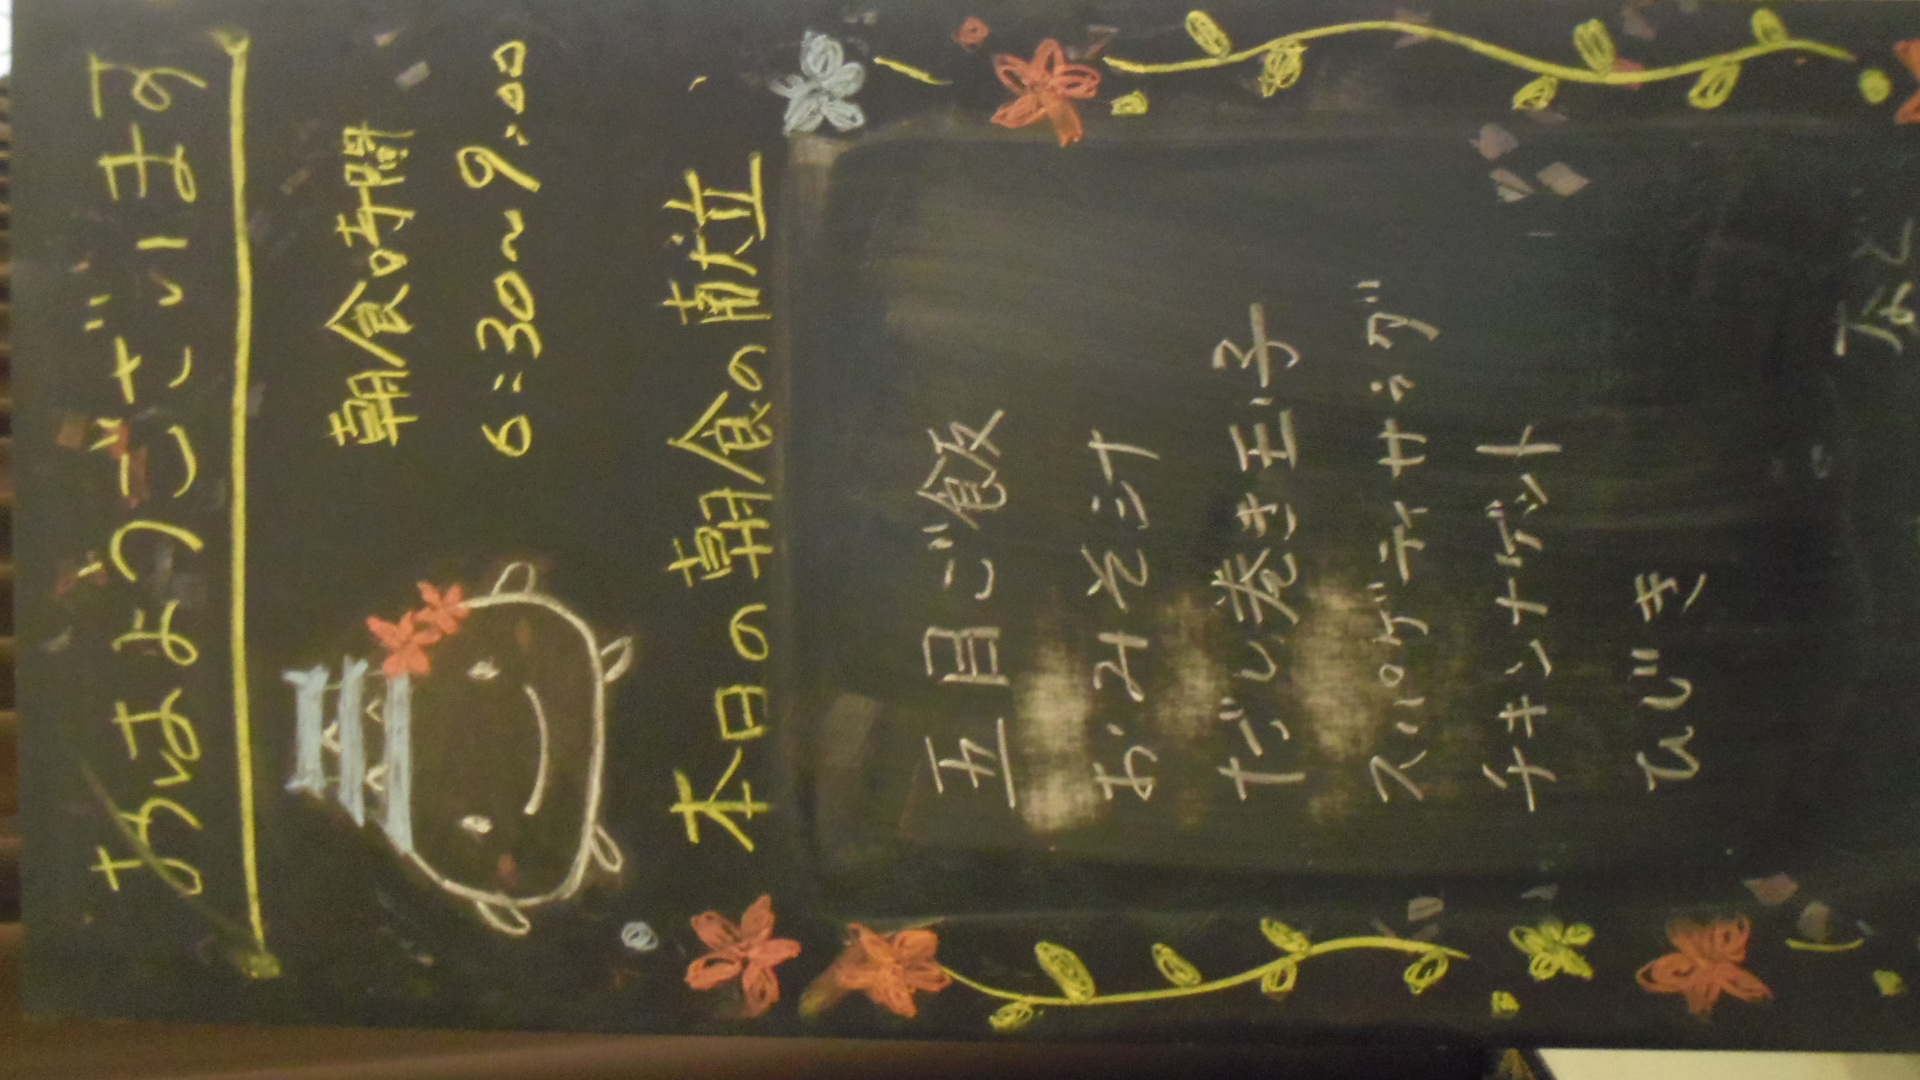 おはようございます
朝食時間
6:30〜9:00
本日の朝食の献立
五目ご飯
おみそ汁
だし巻き玉子
スパゲティサラダ
チキンナゲット
ひじき
など